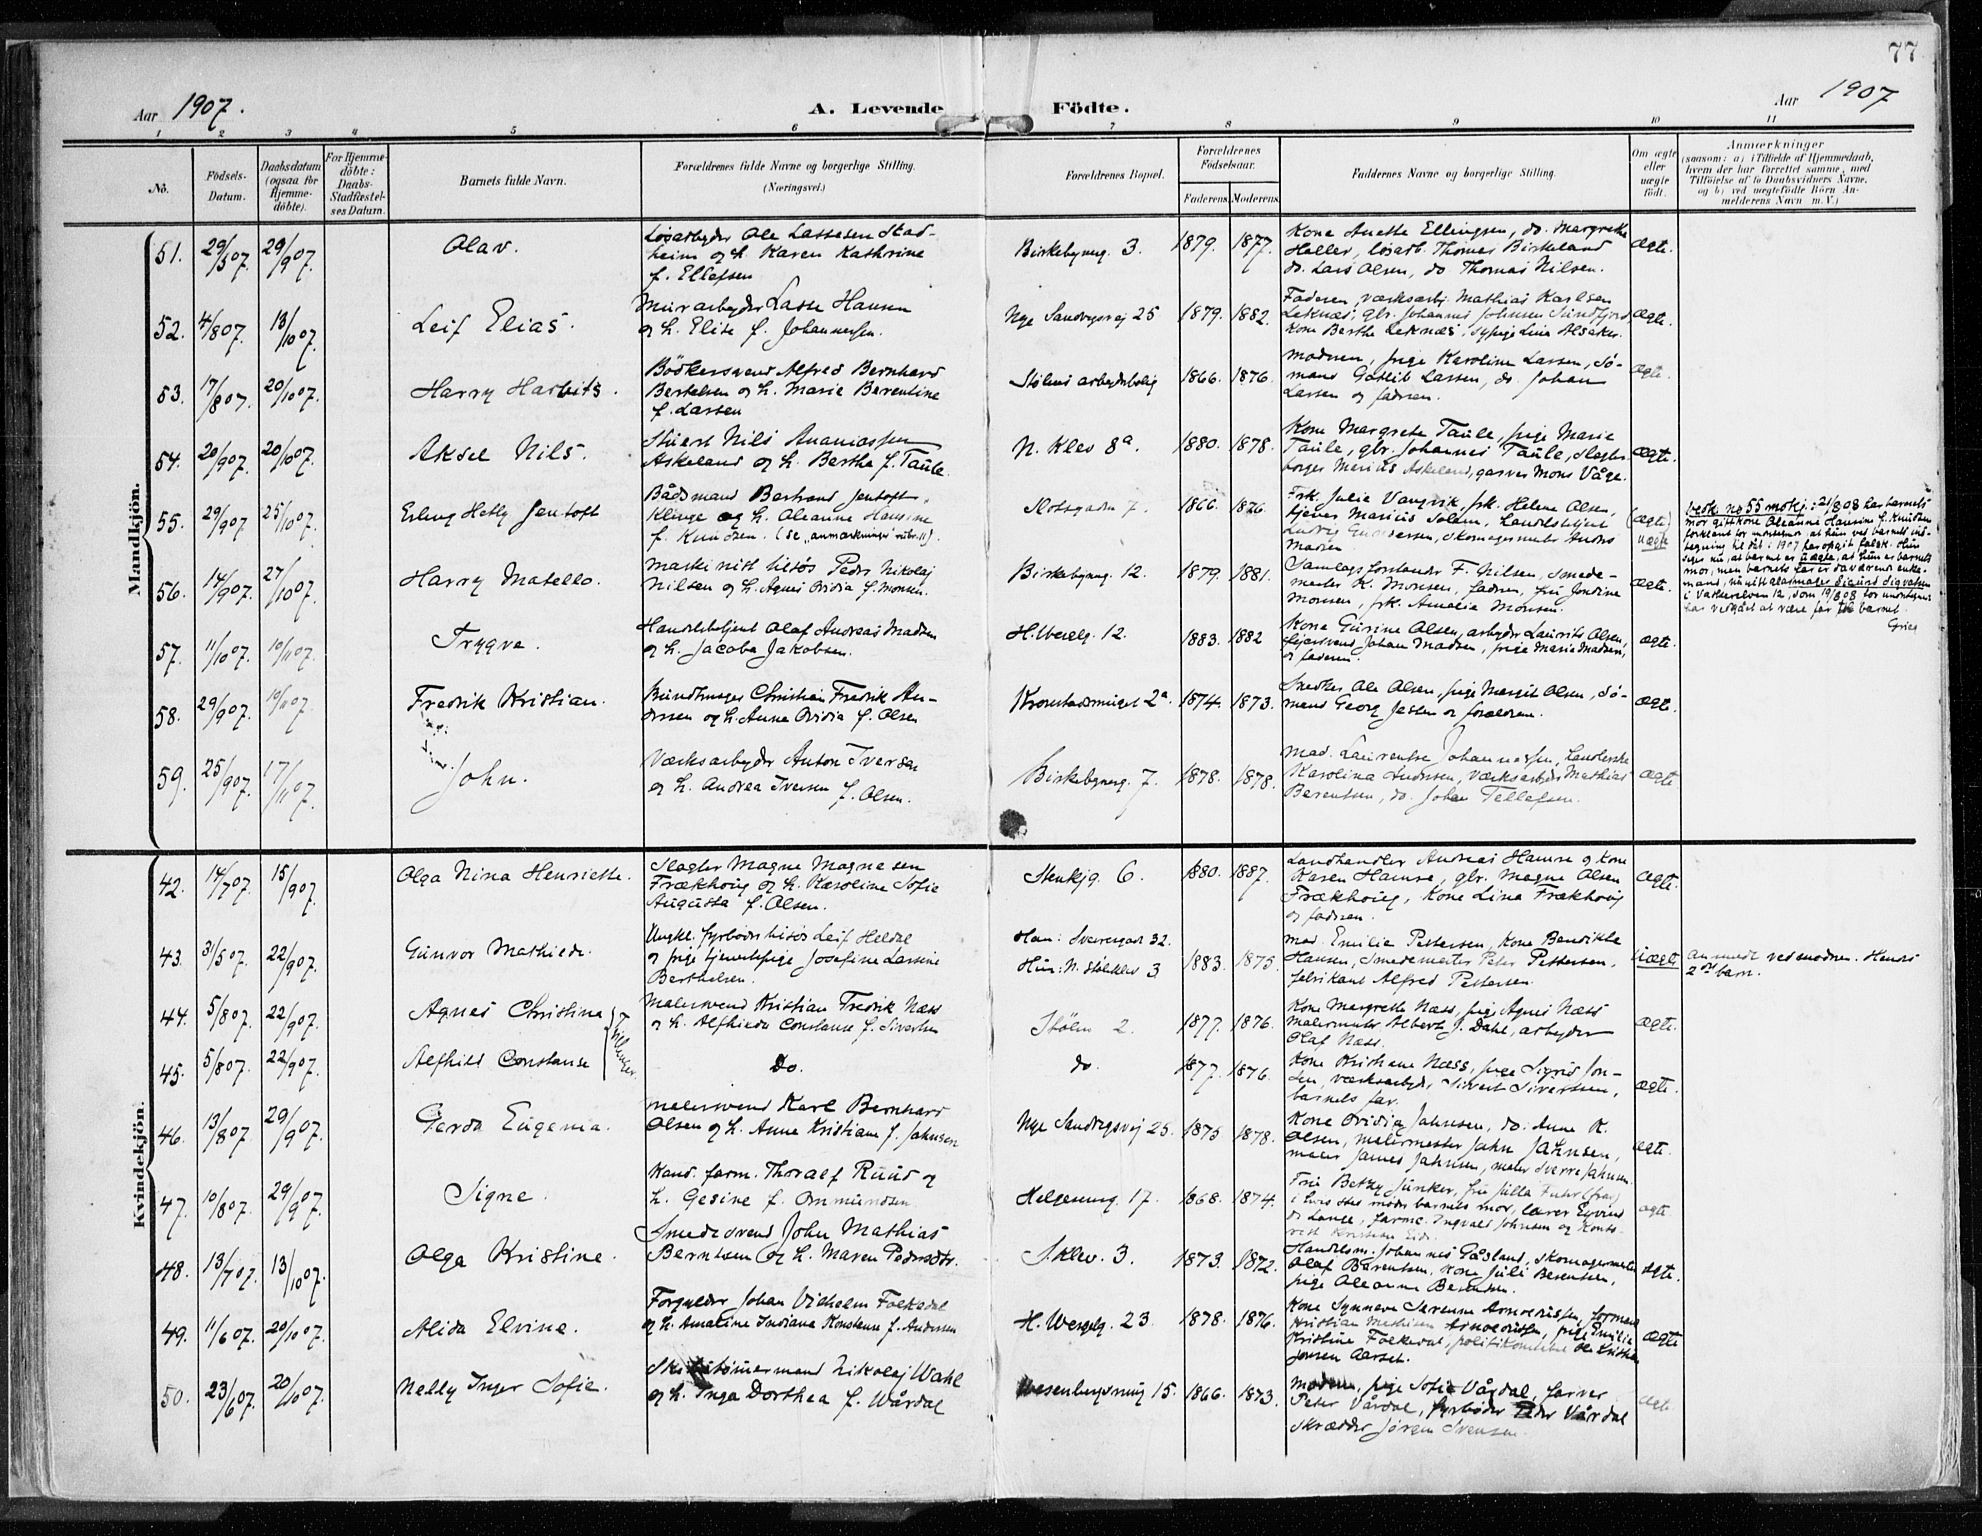 77
Aar 1907.
A. Levende Födte.
Aar 1907
1 2 3 4 5 6 7 8 9 10 11
Nö.
Födsels-Datum.
Daabsdatum (ogsaa for Hjemme-döbte).
For Hjemme-döbte: Daabs- Stadfæstel-ses Datum.
Barnets fulde Navn.
Forældrenes fulde Navne og borgerlige Stilling.
(Næringsvei.)
Forældrenes Bopæl.
Forældrenes Födselsaar.
Faderens. Moderens.
Faddernes Navne og borgerlige Stilling.
Om ægte eller uægte födt.
Anmærkninger
(saasom: a) i Tilfælde af Hjemmedaab,
hvem der har forrettet samme, med
Tilföielse af to Daabsvidners Navne,
og b) ved uægtefödte Börn An-
melderens Navn m. V.)
Mandkjön.
51. 29/5 07. 29/9 07. Olav.
Løsarbeyder Ole Lassesen Stad-
heim og h. Karen Kathrine
f. Ellefsen
Birkebgneng. 3. 1879. 1877.
Kone Anette Ellingsen, do. Margrete
Haller, løsarb. Thomas Birkeland
do. Lars Olsen, do Thomas Nilsen.
ægte.
52. 4/8 07. 13/10 07. Leif Elias.
Murarbeyder Lasse Hansen
og h. Elise f. Johannessen.
Nye Sandvigsvej 25 1879. 1882.
Faderen, værksarb. Mathias Karlsen
Leknæs, gbr. Johannes Johnsen Sundfjord,
Kone Berthe Leknæs, sypige Lina Alsaker.
ægte.
53. 17/8 07. 20/10 07. Harry Harbits.
Bödkersvend Alfred Bernhard
Bertelsen og h. Marie Berentine
f. Larsen
Stölens arbeyderbolig 1866. 1876.
Modren, pige Karoline Larsen, Sö-
mand Gotlib Larsen, do. Johan
Larsen og fadren.
ægte.
54. 20/9 07. 20/10 07. Aksel Nils.
Stuert Nils Ananiassen
Askeland og h. Berthe f. Taule.
N. Klev 8a. 1880. 1878.
Kone Margrete Taule, pige Marie
Taule, gbr. Johannes Taule, Slagter-
borger Marius Askeland, garver Mons Våge.
ægte.
55. 29/9 07. 25/10 07. Erling Helly Jentoft
Bådsmand Bertrand Jentoft
Klinge og h. Oleanne Hansine
f. Knudsen. (se „anmærkninger" rubr. 11).
Slotsgaden 7. 1866. 1876
Frk. Julie Vangvik, frk. Helene Olsen,
tjener Marius Solem, Handelsbetjent
Ludvig Gundersen, skomagermester Anders
Madsen
(ægte) uægte
vedk. no 55 mandkj.: 21/8 08 har barnets
mor gift kone Oleanne Hansine f. Knudsen
56. 14/9 07. 27/10 07. Harry Matello.
Maskinist tilsös Peder Nikolaj
Nilsen og h. Agnes Ovidia f. Monsen.
Birkebgneng. 12. 1879. 1881.
Samlagsforstander F. Nilsen, smede-
mester K. Monsen, fadren, fru Jordine
Monsen, frk. Amalia Monsen.
ægte.
57. 11/10 07. 10/11 07. Trygve.
Handelsbetjent Olaf Andreas Madsen
og h. Jacoba Jakobsen.
H. Wergelg. 12. 1883. 1882
Kone Gurine Olsen, arbeyder Laurits Olsen,
Johan Madsen, pige Marie Madsen,
og faderen.
ægte.
58. 29/9 07. 10/11 07. Fredrik Kristian.
Buntmager Christian Fredrik An-
dersen og h. Anna Ovidia f. Olsen
Kronstadsmuget 2a 1874. 1873.
Snedker Ole Olsen, pige Margit Olsen, Sö-
mand Georg Jessen og forældren.
ægte.
59. 25/9 07. 17/11 07. John.
Værksarbeyder Anton Iversen
og h. Andrea Iversen f. Olsen.
Birkebgneng. 7. 1878. 1878.
Mad. Laurentse Johannessen, Handlerske
Karolina Andersen, værksarbeyder Mathias
Berentsen, do. Johan Tellefsen.
ægte
Kvindekjön.
42. 14/7 07. 15/9 07. Olga Nina Henriette.
Slagter Magne Magnesen
Frækhaug og h. Karoline Sofie
Augusta f. Olsen.
Stenkjg. 6. 1880. 1887.
Landhandler Andreas Hamre og kone
Karen Hamre, gbr. Magne Olsen
Frækhaug, Kone Lina Frækhaug
og fadren.
ægte.
43. 31/5 07. 22/9 07. Gunvor Mathiede.
Ungkl. fyrböder tilsös Leif Heldal
og pige tjenestepige Josefine Lassine
Berthelsen.
Han: Sverresgade 32.
Hun: N. Stöleklev 3 1883. 1875.
Mad. Emilie Pettersen, Kone Bendikte
Hansen, Smedemester Peter Pettersen,
fabrikant Alfred Pettersen.
uægte
anmeldt ved modren. Hendes
2det barn.
44. 5/8 07. 22/9 07. Agnes Christina
Malersvend Kristian Fredrik Næss
og h. Alfhilda Constanse f. Sivertsen
Stölen 2. 1877. 1876.
Kone Margrethe Næss, pige Agnes Næss
Malermester Albert J. Dahl, arbeyder
Olaf Næss.
ægte.
45. 5/8 07. 22/9 07. Alfhild Constanse
Tvillinger.
Do. do. 1877. 1876.
Kone Kristiane Næss, pige Sigrid Jon-
sen, værksarbeyder Sivert Sivertsen,
barnets far.
ægte.
46. 13/8 07. 29/9 07. Gerda Eugenia.
Malersvend Karl Bernhard
Olsen og h. Anne Kristiane f. Jahnsen
Nye Sandvigsvej 25. 1875 1878.
Kone Ovidia Jahnsen, do. Anne K.
Olsen, malermester Jahn Jahnsen,
maler James Jahnsen, maler Sverre Jahnsen.
ægte.
47. 10/8 07. 29/9 07. Signe.
Kand. farm. Thoralf Ruud og
h. Gesine f. Ommundsen
Helgesensg. 17. 1868. 1874.
Frue Betzy Junker, fru Julla Fuhr (frav.)
i hvis sted möder barnets mor, lærer Eyvind
de Lange, farmc. Ingvald Johnsen og Kont-
rist Kristian Eide.
ægte
48. 13/7 07. 13/10 07. Olga Kristine.
Smedesvend John Mathias
Berntsen og h. Maren Pedersdtr.
S. klev. 3. 1873. 1872.
Handlsm. Johannes Gåsland, skomagermester
Olaf Berentsen, Kone Juli Berentsen,
pige Oleanne Berentsen.
ægte.
49. 11/6 07. 20/10 07. Alida Elvine.
Forgylder Johan Vilhelm Folkedal
og h. Amaline Indiane Konstanse f. Andersen
H. Wergelg. 23. 1878. 1876.
Kone Synneve Severine Arnoldussen, formand
Kristian Mathias Arnoldussen, pige Emilie
Kristine Folkedal, politikonstabel Ole Kristian
Jonsen Aarset.
ægte
50. 23/6 07. 20/10 07. Nelly Inger Sofie.
Skibstömermand Nikolaj Wahl
og h. Inga Dorthea f. Wårdal
Wesenbergsmug 15. 1866. 1873.
Modren, pige Sofie Vårdal, farver
Peter Vårdal, fyrböder Peder Vårdal
Skrædder Jörgen Svensen.
ægte.